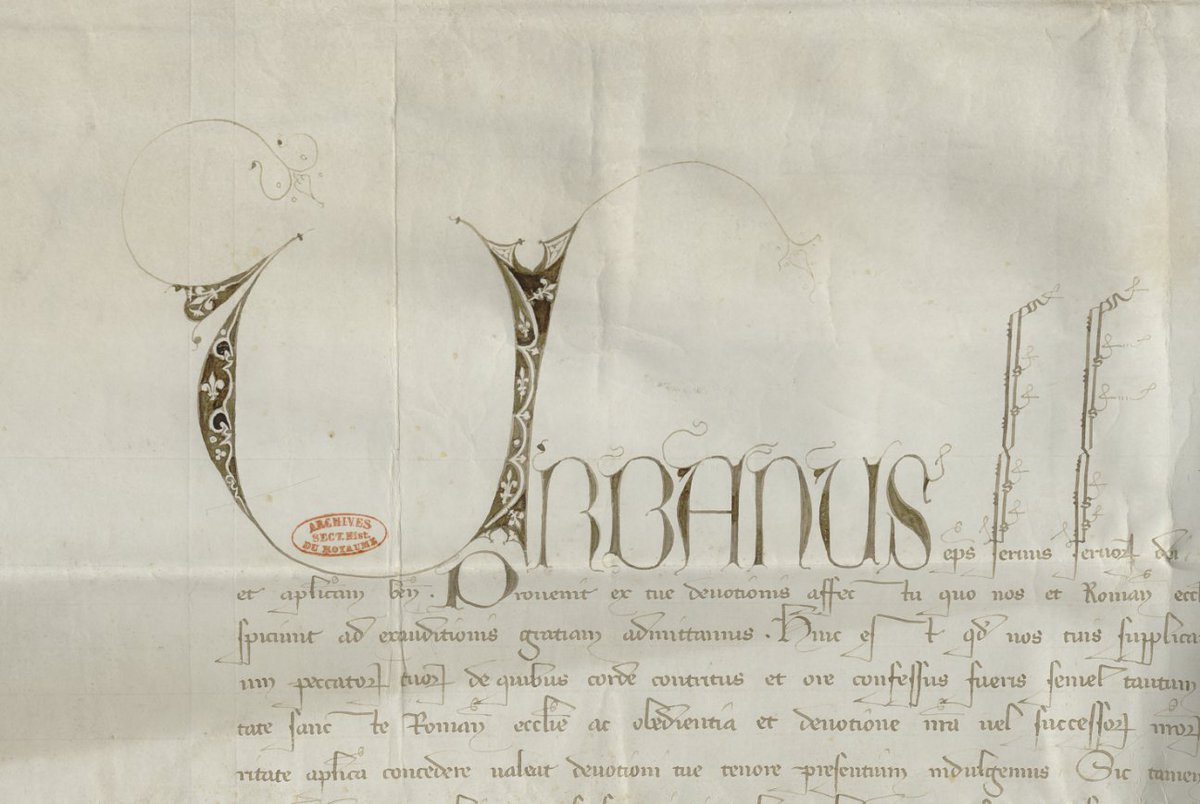 URBANUS eps servus servoꝝ dei
ARCHIVES
SECT. Hist.
DU ROYAUME
et aplicam ben. Provenit ex tue devotionis affectu quo nos et Roman eccl
spiciunt ad exauditionis gratiam admittamus. Hinc est qd nos tuis supplica
um peccatoꝝ tuoꝝ de quibus corde contritus et ore confessus fueris semel tantum
tate sancte Roman ecclie ac obedientia et devotione nra vel successoꝝ nroꝝ
ritate aplica concedere valeat devotioni tue tenore presentium indulgemus Sic tamen